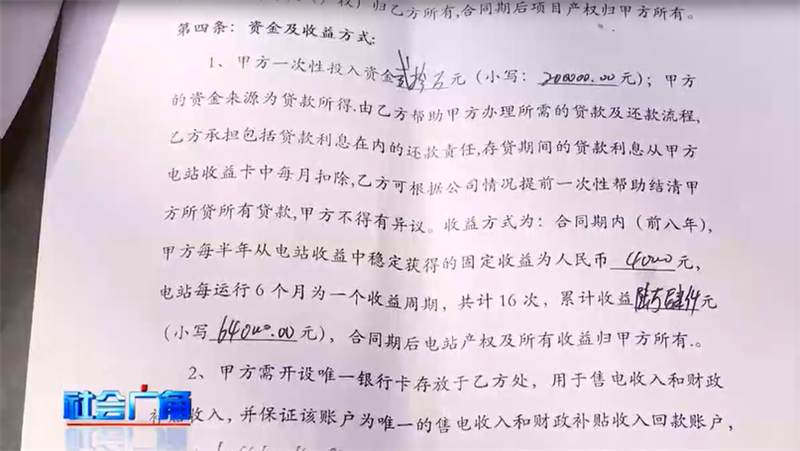 产权）归乙方所有，合同期后项目产权归甲方所有。
第四条：资金及收益方式：
1、甲方一次性投入资金贰拾万元（小写：200000.00元）；甲方
的资金来源为贷款所得.由乙方帮助甲方办理所需的贷款及还款流程,
乙方承担包括贷款利息在内的还款责任,存贷期间的贷款利息从甲方
电站收益卡中每月扣除,乙方可根据公司情况提前一次性帮助结清甲
方所贷所有贷款,甲方不得有异议。收益方式为：合同期内（前八年),
甲方每半年从电站收益中稳定获得的固定收益为人民币 4000 元,
电站每运行6个月为一个收益周期，共计16次，累计收益陆万肆仟元
(小写 64000.00 元），合同期后电站产权及所有收益归甲方所有.。
2、甲方需开设唯一银行卡存放于乙方处，用于售电收入和财政
补贴收入，并保证该账户为唯一的售电收入和财政补贴收入回款账户，
社会广角